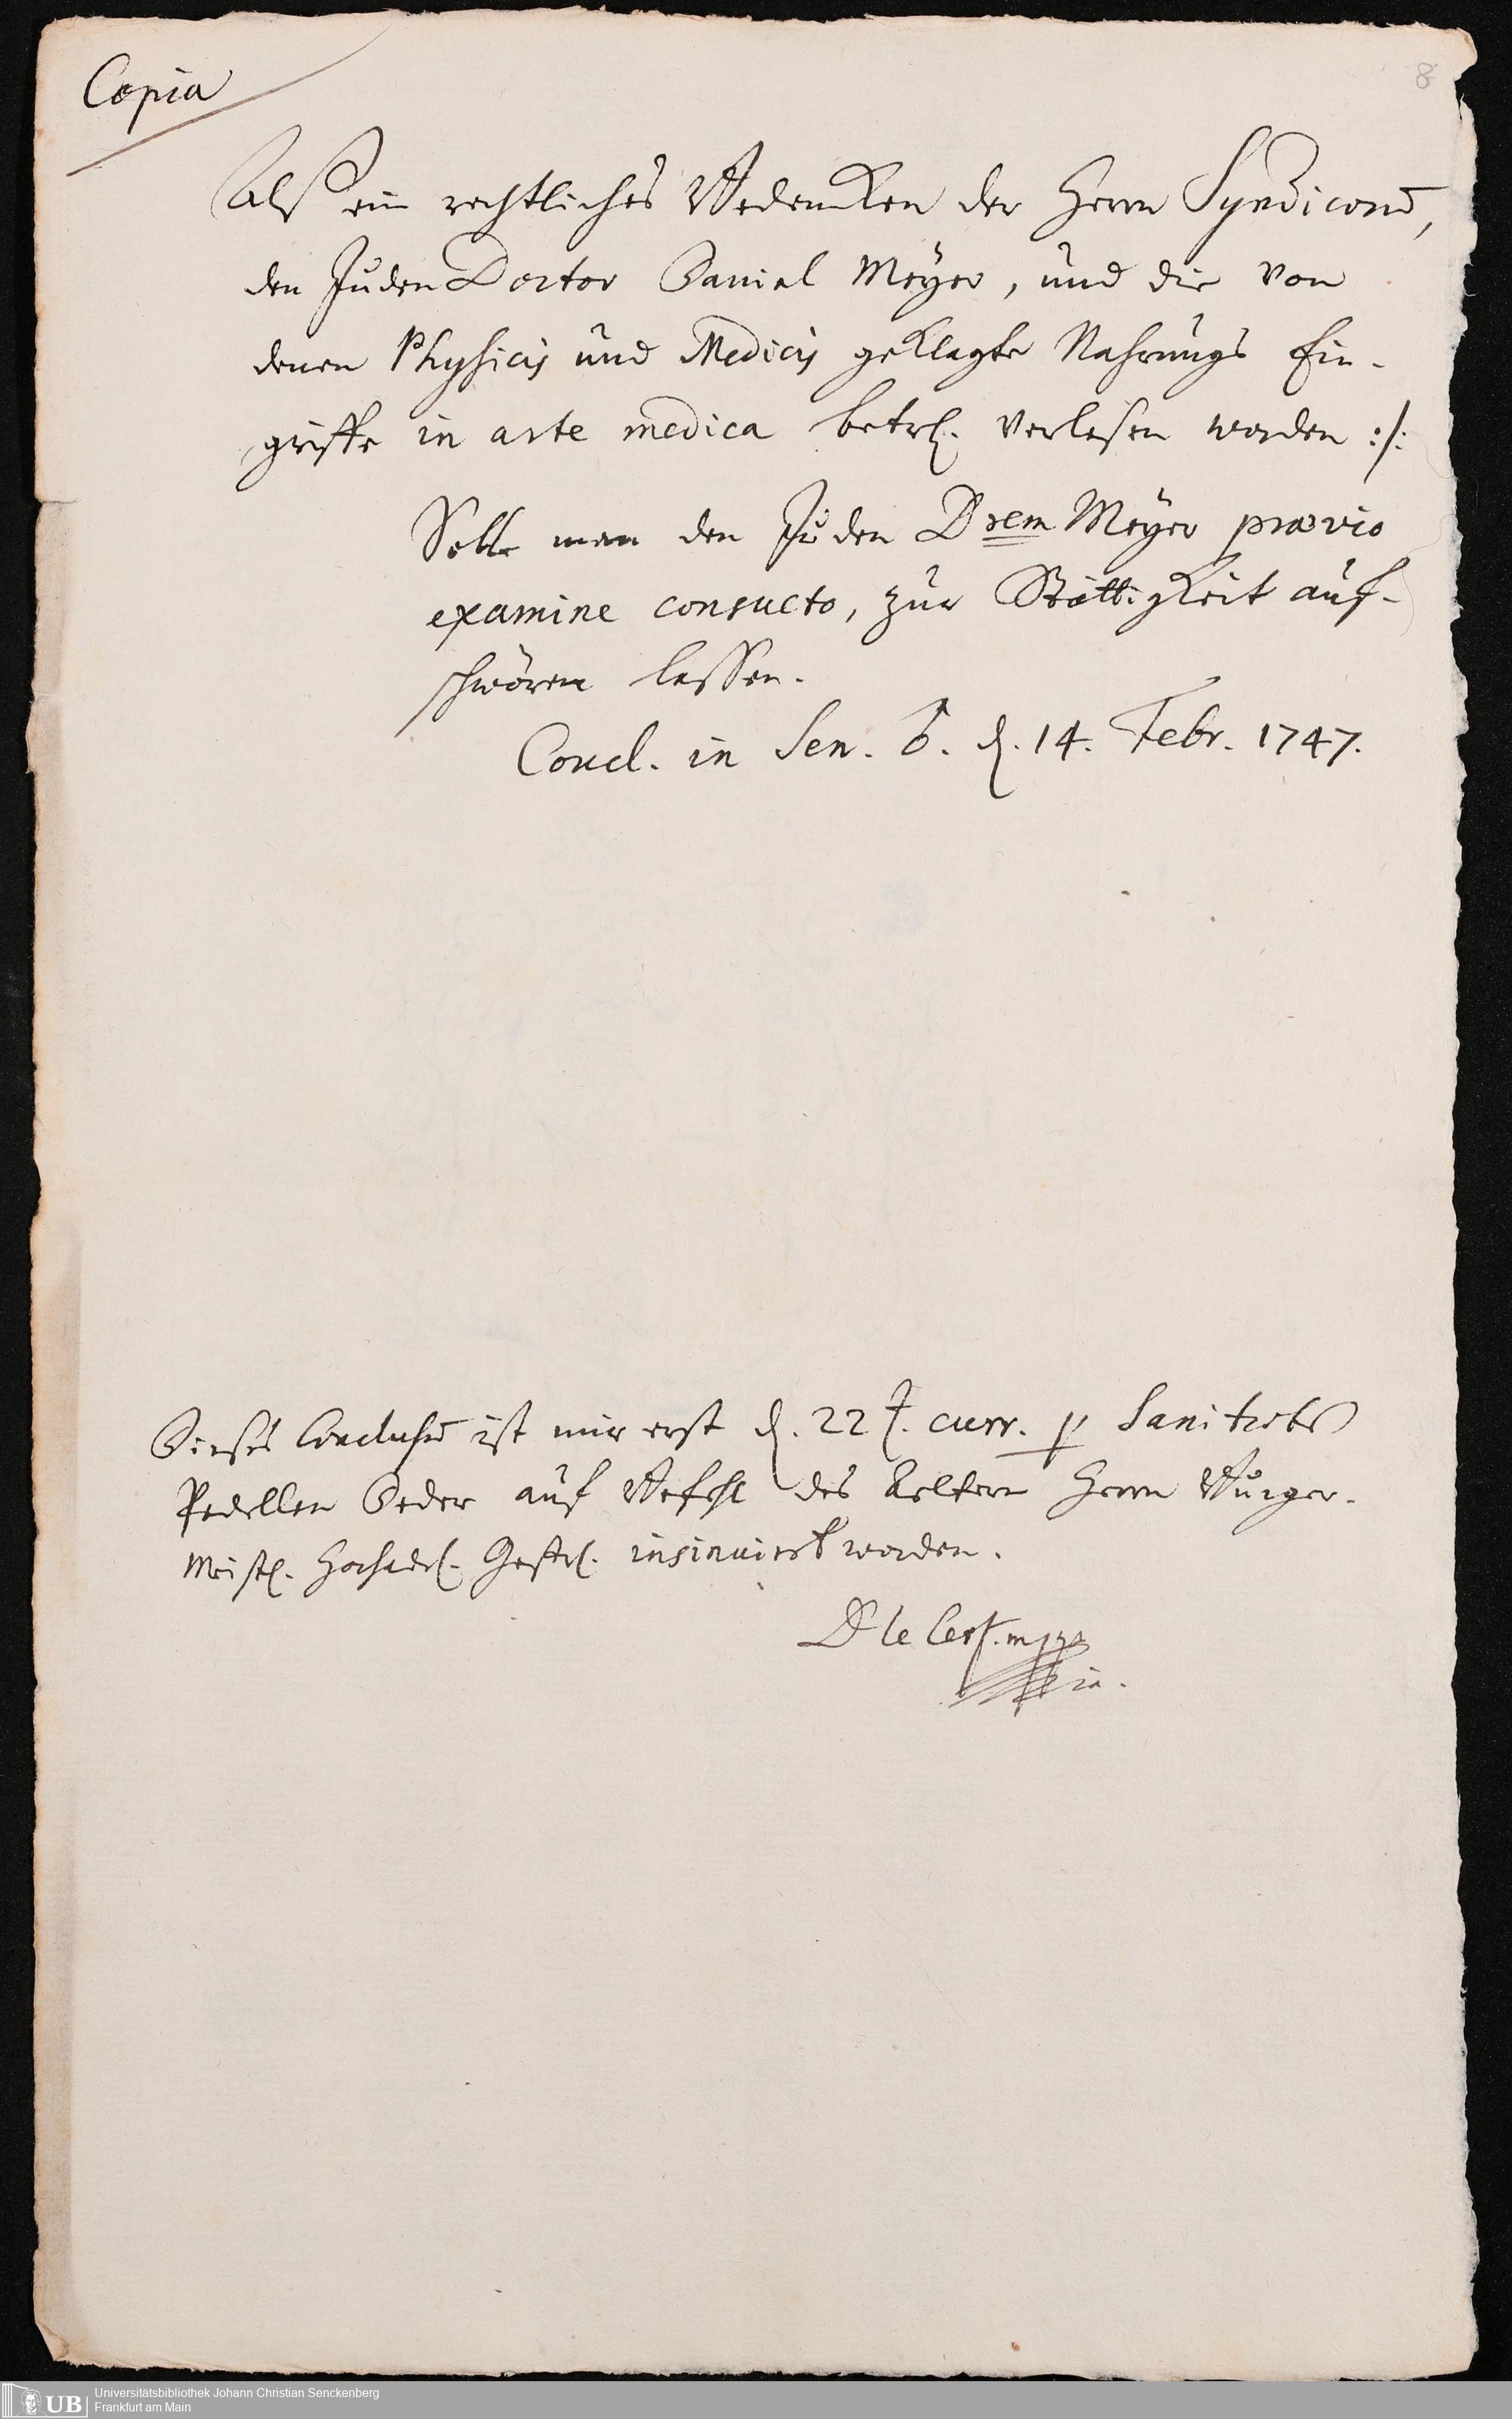 Copia
8
Alß ein rechtliches Bedencken der Herrn Syndicorū,
den Juden Doctor Daniel Meyer, und die von
denen Physicis und Medicis geklagte Nahrungs Ein-
griffe in arte medica betrf. verlesen worden :/:
Solle man den Juden Drem Meyer prævio
examine consueto, zur Stättigkeit auf-
schwören lassen.
Concl. in Sen. ♂. d. 14. Febr. 1747.
Dieses Conclusū ist mir erst d. 22t. curr. p Sanitæts
Pedellen Oeder auf Befehl des Aeltern Herrn Burger-
Meistr. Hochadel. Gestr. insinuirt worden.
D le Cerf. mppria.
UB
Universitätsbibliothek Johann Christian Senckenberg
Frankfurt am Main